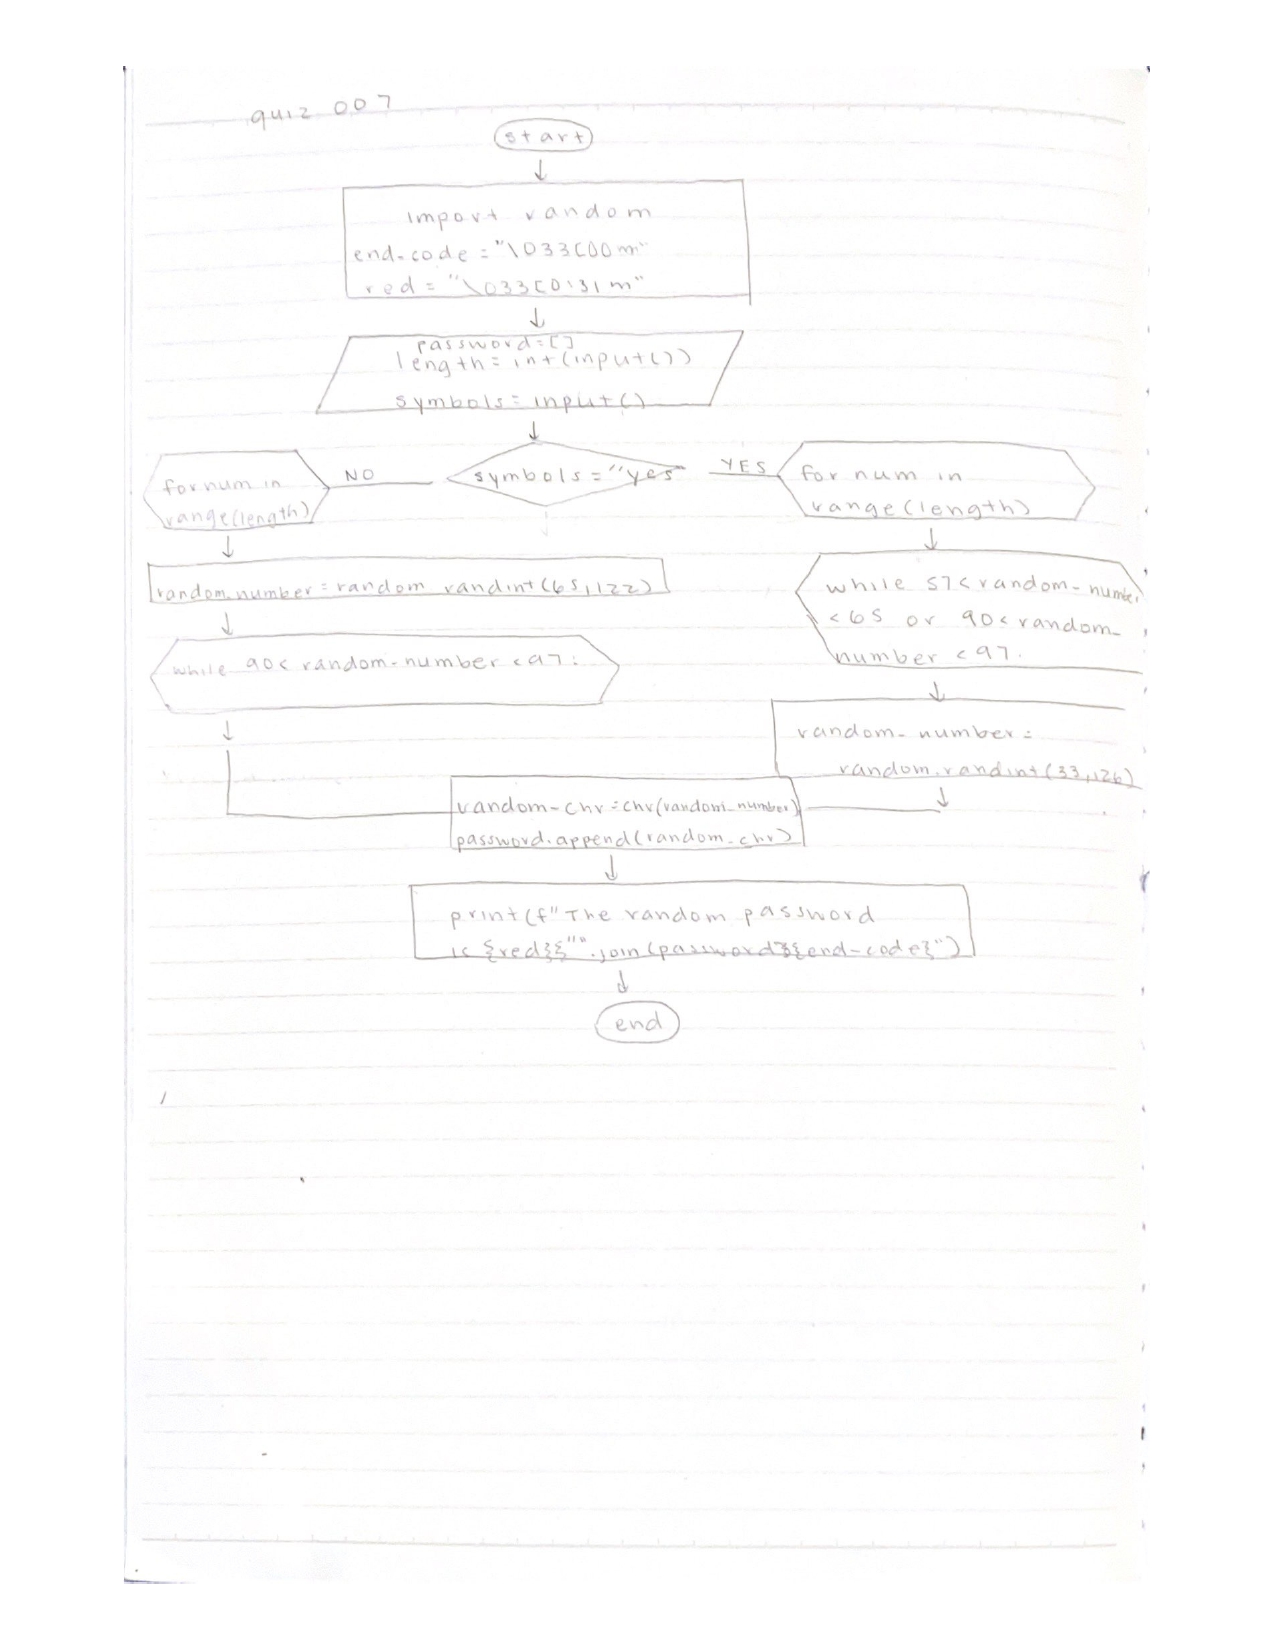 quiz 007
start
import random
end-code = "\033[00m"
red = "\033[0:31m"
password=[]
length=int(input())
symbols=input()
for num in
range(length)
NO
symbols="yes
YES
for num in
range(length)
random_number=random randint(65,122)
while 57<random-number
<65 or 90<random-
number <97.
while 90< random-number <97:
random-number=
random.randint(33,126)
random-chr=chr(random_number)
password.append(random_chr)
print(f"The random password
is {red}{"".join(password}{end-code}")
end